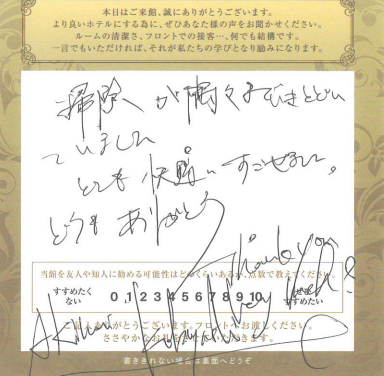 本日はご来館、誠にありがとうございます。
より良いホテルにする為に、ぜひあなた様の声をお聞かせください。
ルームの清潔さ、フロントでの接客…、何でも結構です。
一言でもいただければ、それが私たちの学びとなり励みになります。
掃除が隅々までいきとどい
ていました
とても快適にすごせました。
どうもありがとう
Thank you
当館を友人や知人に勧める可能性はどのくらいあるか、点数で教えてください。
すすめたく
ない
0 1 2 3 4 5 6 7 8 9 10
ぜひ
すすめたい
ご記入ありがとうございます。フロントへお渡しください。
ささやかな
書ききれない場合は裏面へどうぞ